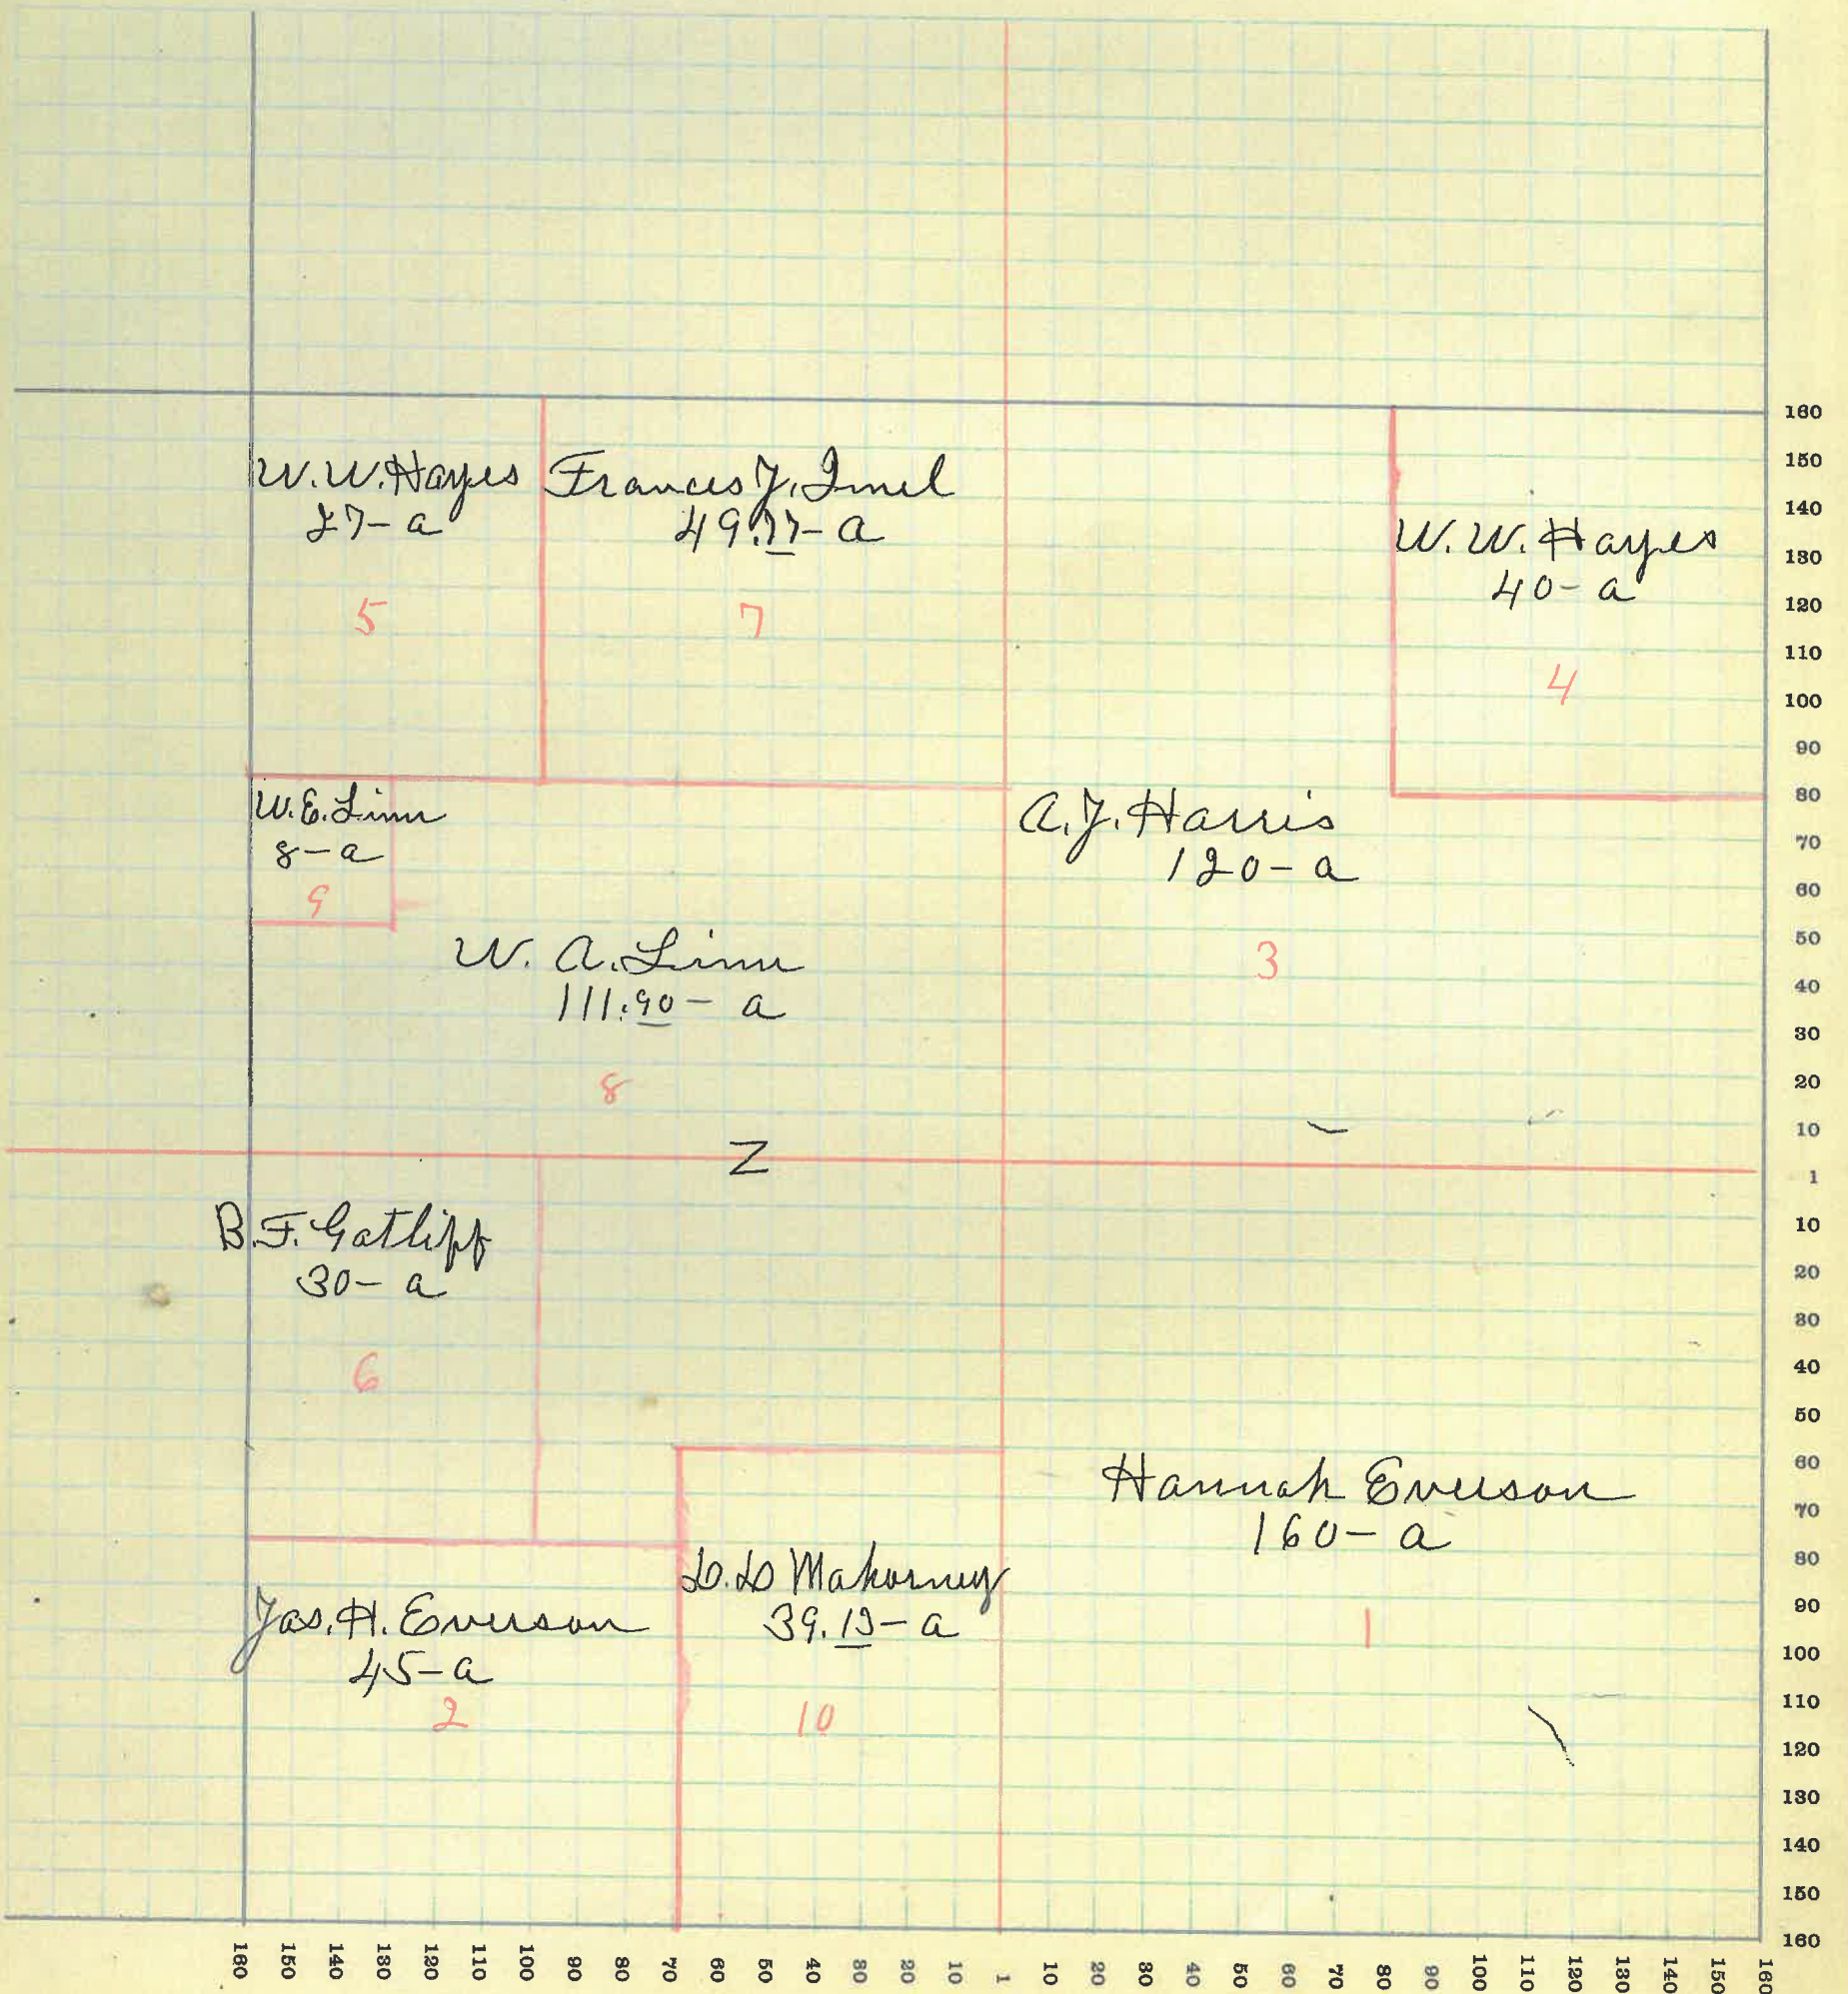 W.W. Hayes
27-a
5
Frances J. Imel
49.77-a
7
W.W. Hayes
40-a
4
W.E. Linn
8-a
9
A.J. Harris
120-a
3
W. A. Linn
111.90-a
8
Z
B.F. Gatliff
30-a
6
Hannah Everson
160-a
1
Jas. H. Everson
45-a
2
39.13-a
10
160
150
140
130
120
110
100
90
80
70
60
50
40
30
20
10
1
10
20
30
40
50
60
70
80
90
100
110
120
130
140
150
160
160 150 140 130 120 110 100 90 80 70 60 50 40 30 20 10 1 10 20 30 40 50 60 70 80 90 100 110 120 130 140 150 160